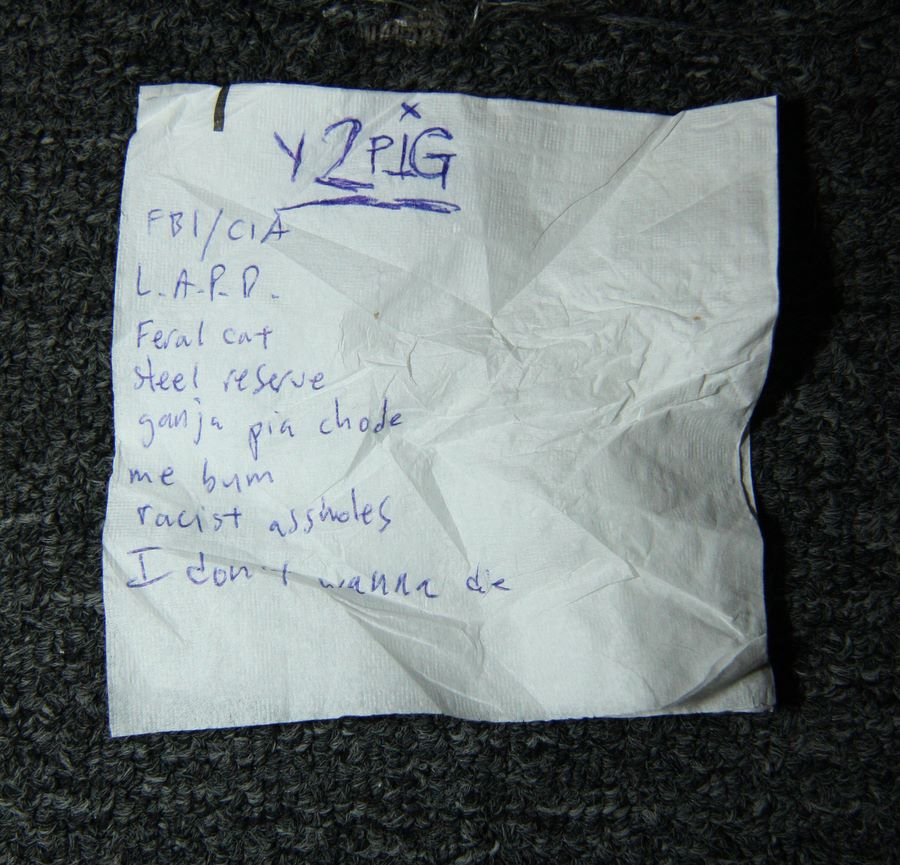 Y2PiG
FBI/CIA
L.A.P.D.
Feral cat
steel reserve
ganja pia chode
me bum
racist assholes
I don't wanna die